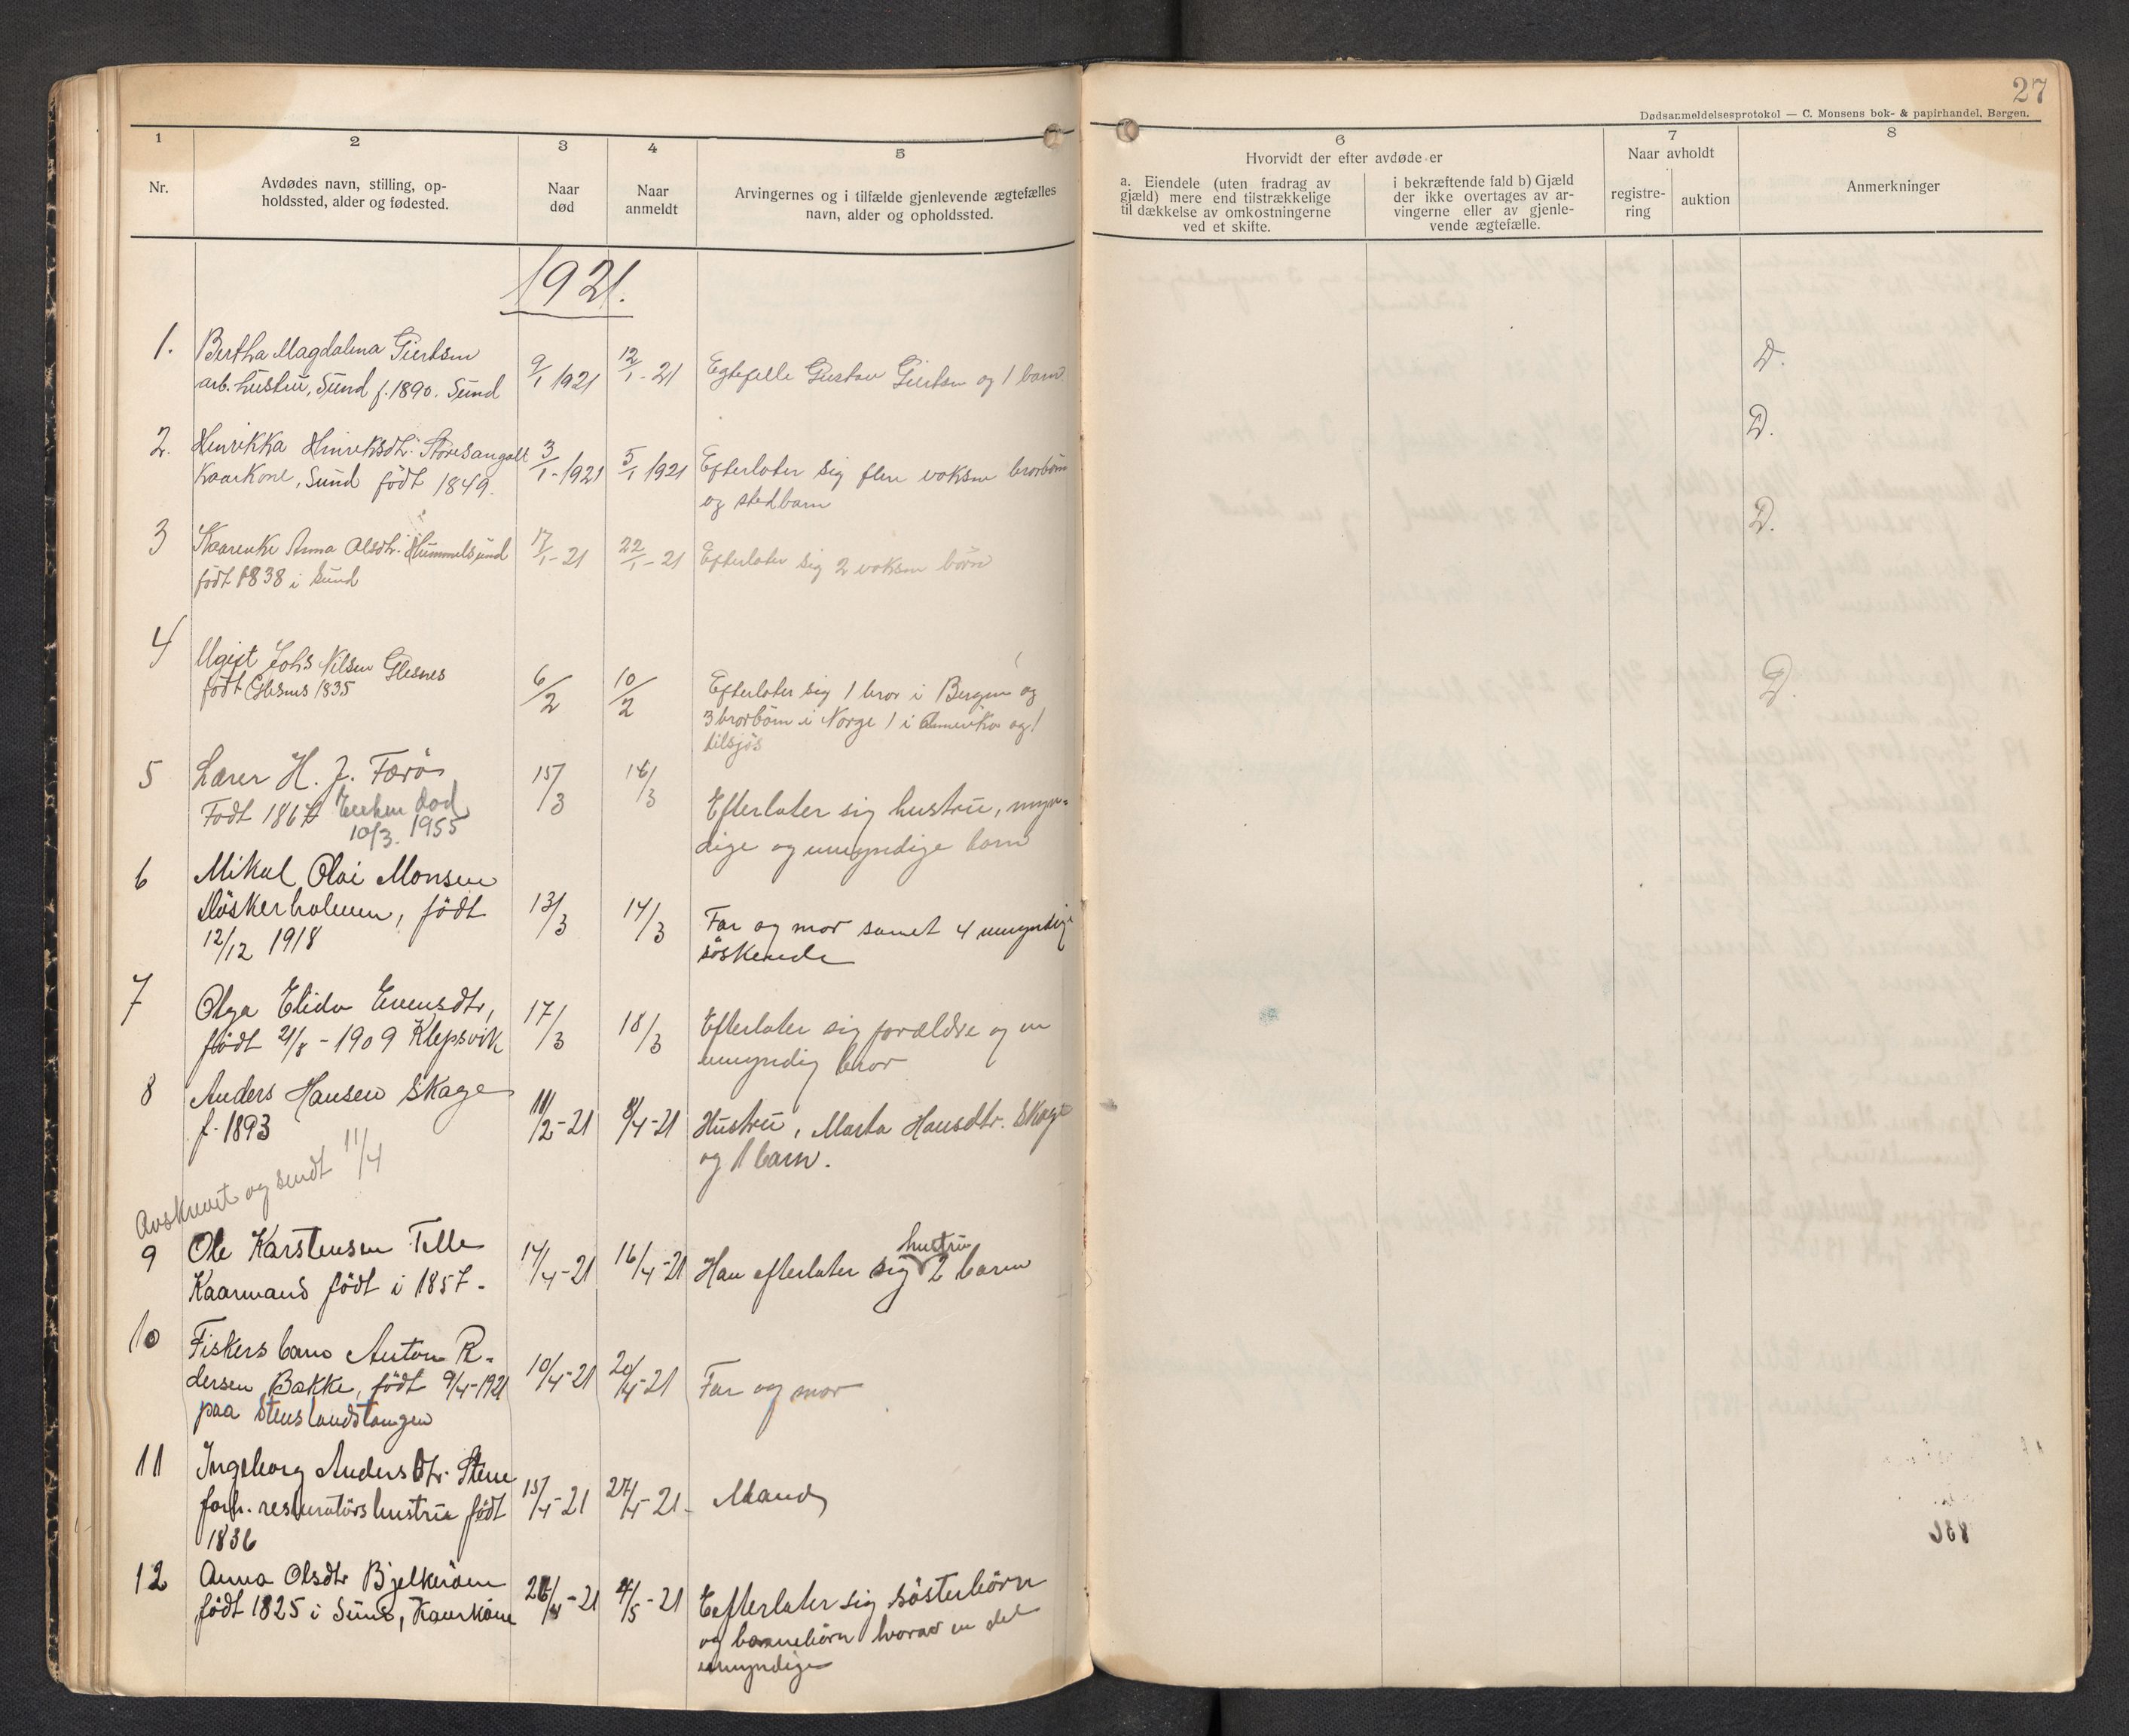 27
Dødsanmeldelsesprotokol — C. Monsens bok- & papirhandel, Bergen.
1
2
3
4
5
6
7
8
Nr.
Avdødes navn, stilling, op-
holdssted, alder og fødested.
Naar
død
Naar
anmeldt
Arvingernes og i tilfælde gjenlevende ægtefælles
navn, alder og opholdssted.
Hvorvidt der efter avdøde er
a. Eiendele (uten fradrag av
gjæld) mere end tilstrækkelige
til dækkelse av omkostningerne
ved et skifte.
i bekræftende fald b) Gjæld
der ikke overtages av ar-
vingerne eller av gjenle-
vende ægtefælle.
Naar avholdt
registre-
ring
auktion
Anmerkninger
1921.
1. Bertha Magdalena Giertsen
arb. hustru, Sund f. 1890. Sund
9/1 1921
12/1-21
Egtefelle Gustav Giertsen og 1 barn
D.
2. Henrikka Henriksdtr. Storesangolt
Kaarkone, Sund født 1849.
3/1-1921
5/1 1921
Efterlater sig flere voksne brorbørn
og stedbarn
D.
3 Kaarenke Anna Olsdtr. Hummelsund
født 1838 i Sund
17/1-21
22/1-21
Efterlater sig 2 voksne børn
D.
4 Ugift Johs Nilsen Glesnes
født Glesnes 1835
6/2
10/2
Efterlater sig 1 bror i Bergen og
3 brorbørn i Norge 1 i Amerika og 1
tilsjøs
D.
5 Lærer H. J. Færø
Født 1867 Enken død
10/3. 1955
15/3
16/3
Efterlater sig hustru, myn-
dige og umyndige barn
6 Mikal Olai Monsen
Løskerholmen, født
12/12 1918
13/3
14/3
Far og mor samt 4 umyndige
søskende
7 Olga Elida Evensdtr,
født 21/8-1909 Klepsvik
17/3
18/3
Efterlater sig forældre og en
umyndig bror
8 Anders Hansen Skage
f. 1893
11/2-21
8/4-21
Hustru, Marta Hansdtr. Skage
og 1 barn.
Avskrevet og sendt 11/4
9 Ole Karstensen Telle
Kaarmand født i 1857.
14/4-21
16/4-21
hustru
Han efterlater sig 2 barn
10 Fiskers barn Anton R-
dersen Bakke, født 9/4-1921
paa Stenslandstangen
10/4-21
20/4-21
Far og mor
11 Ingeborg Andersdtr. Steine
forh. resturatørs hustru født
1836
15/4-21
27/4-21
Mand
12 Anna Olsdtr Bjelkerøen
født 1825 i Sund, Kaarkone
26/4-21
4/5-21
Eefterlater sig søsterbørn
og barnebørn hvorav en del
umyndige